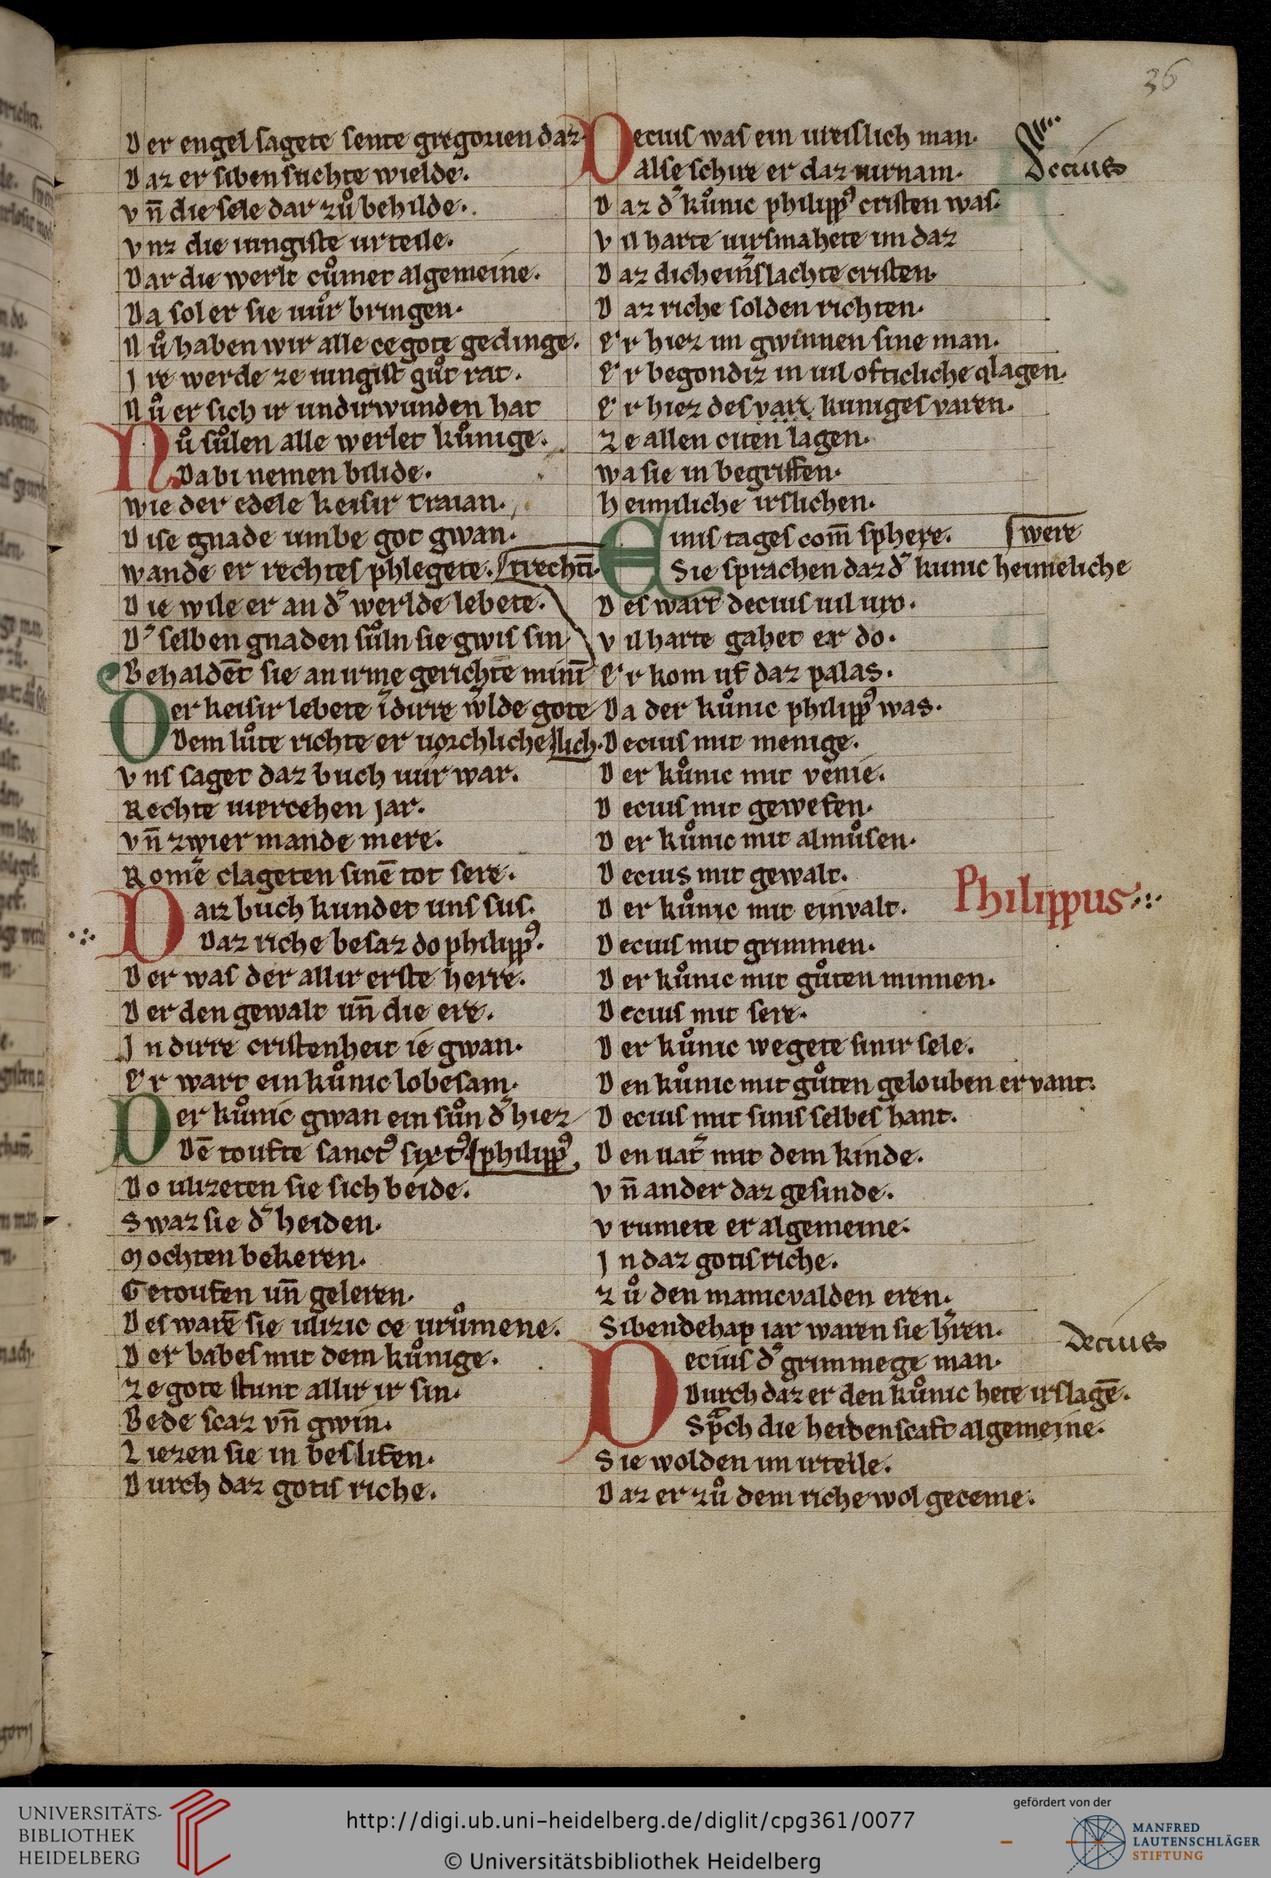 36
Der engel sagete sente gregorien daz
Daz er siben suchte wielde.
vn̄ die sele dar zuͦ behilde.
vnz die iungiste urteile.
Dar die werlt cuͦmet algemeine.
Da sol er sie uur bringen.
Nuͦ haben wir alle ce gote gedinge.
Ire werde ze iungist guͦt rat.
Nuͦ er sich ir undirwunden hat
Nuͦ suͦlen alle werlet kuͦnige.
Da bi nemen bilide.
wie der edele keisir traian.
Dise gnade umbe got gwan.
wande er rechtes phlegete.
Die wile er an d͛ werlde lebete.
D͛ selben gnaden suͦln sie gwis sin
Behaldēt sie an irme gerichte minī
trechtī.
Der keisir lebete ī dirre w̾lde gote
Dem luͦte richte er uorchliche
lich.
vns saget daz buch uur war.
Rechte uiercehen jar.
vn̄ zwier mande mere.
Romē clageten sinē tot sere.
Daz buch kundet uns sus.
Daz riche besaz do philipp᾽.
Der was der allir erste herre.
Der den gewalt un̄ die ere.
In dirre cristenheit ie gwan.
Er wart ein kuͦnic lobesam.
Der kuͦnic gwan ein suͦn d͛ hiez
Dē toufte sanct᾽ sixt᾽
philipp᾽
Do ulizeten sie sich beide.
Swaz sie d͛ heiden.
Mochten bekeren.
Getoufen un̄ geleren.
Des warē sie ulizic ce uruͦmene.
Der babes mit dem kuͦnige.
Ze gote stunt allir ir sin.
Bede scaz vn̄ gwin.
Liezen sie in besliten.
Durch daz gotis riche.
Decius was ein ureislich man.
Alse schire er daz uirnam.
Daz d͛ kuͦnic philipp᾽ cristen was.
vil harte uirsmahete im daz
Daz dicheinslachte cristen
Daz riche solden richten.
Er hiez im gwinnen sine man.
Er begondiz in uil ofticliche qlagen.
Er hiez des kuniges varen.
Ze allen citen lagen.
wa sie in begriffen.
heimliche irslichen.
Einis tages com̄ sphere.
were
Sie sprachen daz d͛ kunic heimeliche
Des wart decius uil uro.
vil harte gahet er do.
Er kom uf daz palas.
Da der kuͦnic philipp᾽ was.
Decius mit menige.
Der kuͦnic mit venie.
Decius mit gewefen.
Der kuͦnic mit almuͦsen.
Decius mit gewalt.
Der kuͦnic mit einvalt.
Decius mit grimmen.
Der kuͦnic mit guͦten minnen.
Decius mit sere.
Der kuͦnic wegete sinir sele.
Den kuͦnic mit guͦten gelouben er vant.
Decius mit sinis selbes hant.
Den uat͛ mit dem kinde.
vn̄ ander daz gesinde.
vrumete er algemeine.
In daz gotis riche.
Zuͦ den manicvalden eren.
Sibendehap iar waren sie h͛ren.
Decius d͛ grimmege man.
Durch daz er den kuͦnic hete irslagē.
Sp̄ch die heidenscaft algemeine.
Sie wolden im irteile.
Daz er zuͦ dem riche wol geceme.
Decius
Philippus
Decius
UNIVERSITÄTS-
BIBLIOTHEK
HEIDELBERG
http://digi.ub.uni-heidelberg.de/diglit/cpg361/0077
© Universitätsbibliothek Heidelberg
gefördert von der
MANFRED
LAUTENSCHLÄGER
STIFTUNG